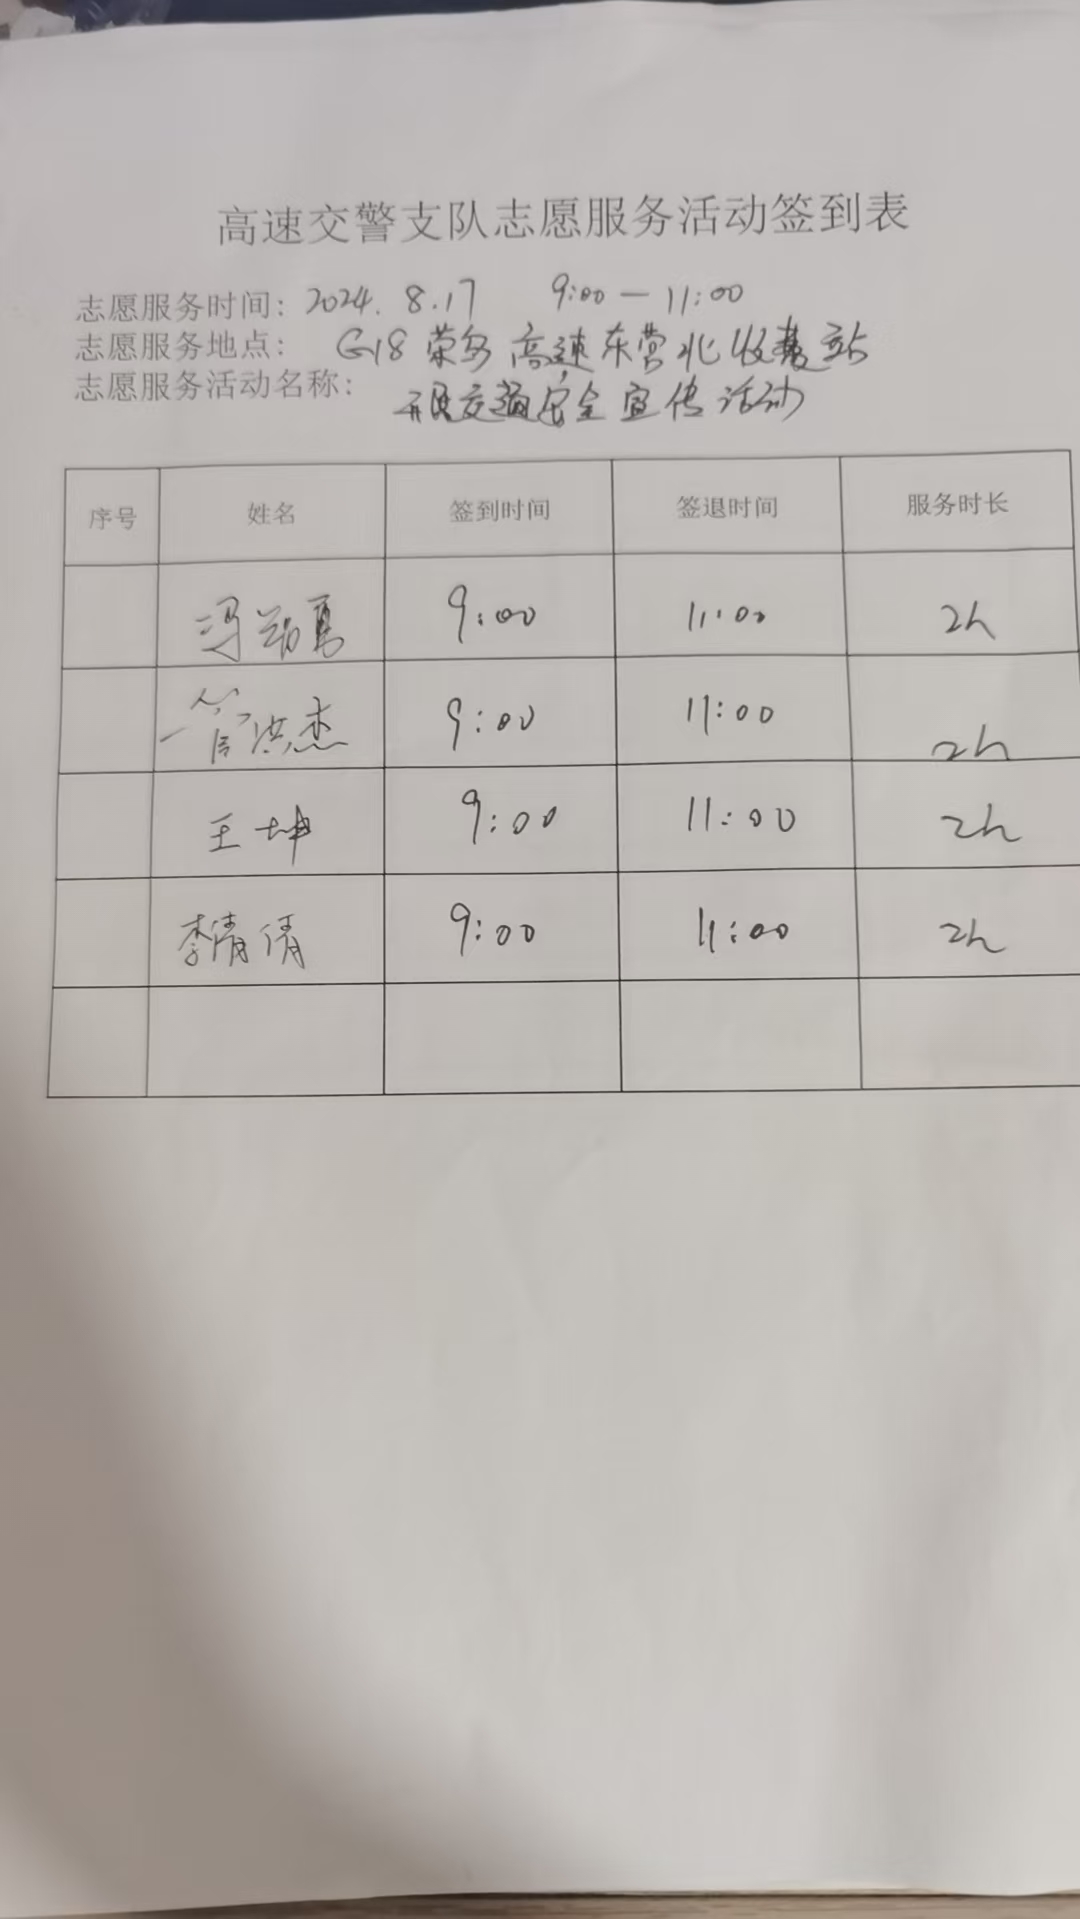 高速交警支队志愿服务活动签到表
志愿服务时间: 2024. 8.17 9:00 — 11:00
志愿服务地点: G18荣乌高速东营北收费站
志愿服务活动名称: 开展交通安全宣传活动
序号 姓名 签到时间 签退时间 服务时长
冯 9:00 11:00 2h
管洪杰 9:00 11:00 2h
王坤 9:00 11:00 2h
李倩倩 9:00 11:00 2h